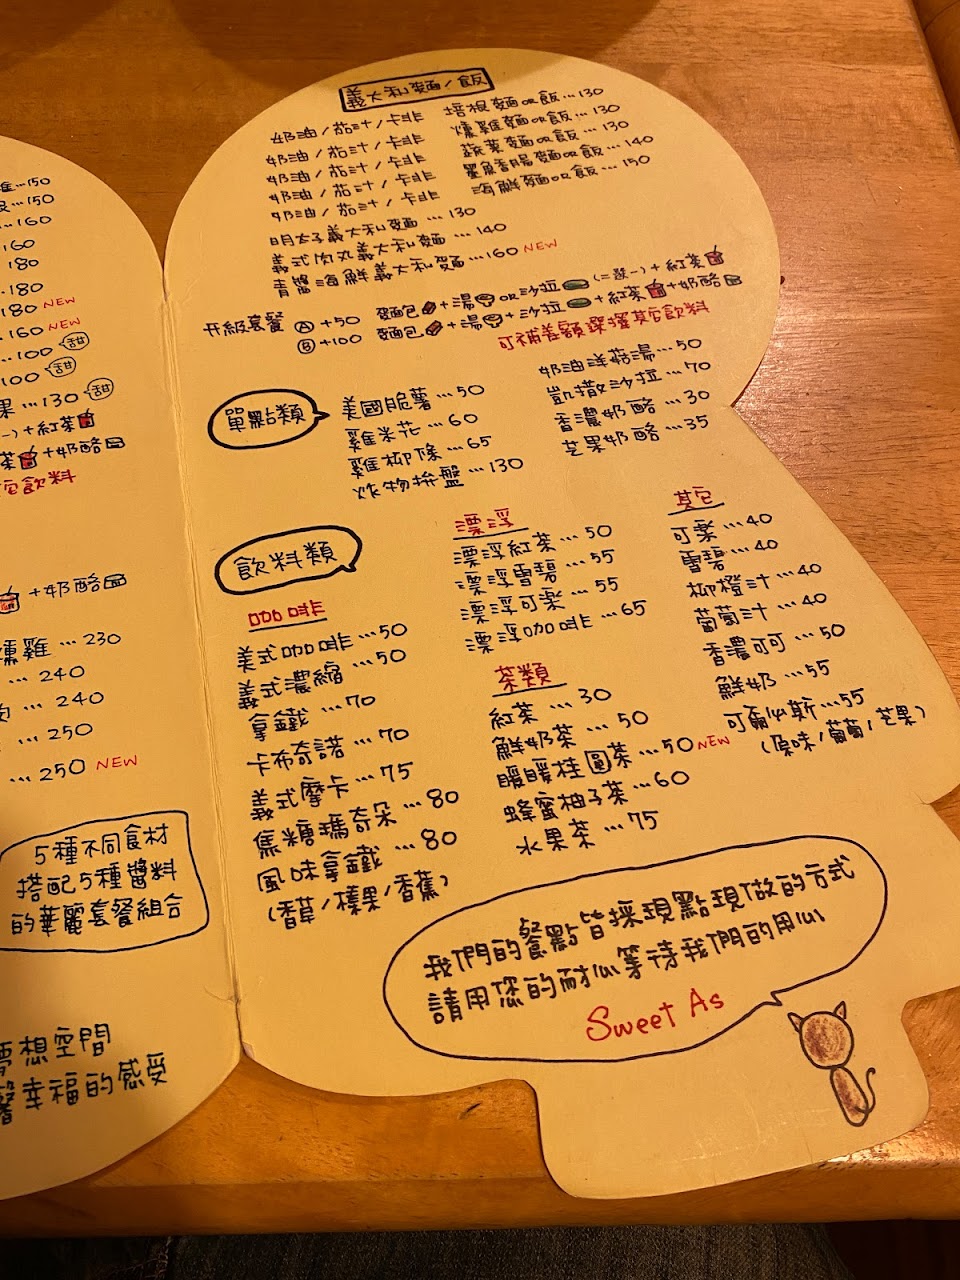 …150
…150
…160
…160
…180
…180
…180 NEW
…160 NEW
…100 甜
100 甜
果…130 甜
)+紅茶
茶+奶酪
飲料
+奶酪
燻雞…230
…240
…240
…250
…250 NEW
5種不同食材
搭配5種醬料
的華麗套餐組合
夢想空間
馨幸福的感受
義大利麵/飯
奶油/茄汁/卡非 培根麵or飯…130
奶油/茄汁/卡非 燻雞麵or飯…130
奶油/茄汁/卡非 蔬菜麵or飯…130
奶油/茄汁/卡非 墨魚香腸麵or飯…140
奶油/茄汁/卡非 海鮮麵or飯…150
明太子義大利麵…130
義式肉丸義大利麵…140
青醬海鮮義大利麵…160 NEW
升級套餐 Ⓐ+50 麵包+湯or沙拉(二選一)+紅茶
Ⓑ+100 麵包+湯+沙拉+紅茶+奶酪
可補差額選擇其它飲料
單點類
美國脆薯…50
雞米花…60
雞柳條…65
炸物拚盤…130
奶油洋菇湯…50
凱撒沙拉…70
香濃奶酪…30
芒果奶酪…35
飲料類
咖啡
美式咖啡…50
義式濃縮…50
拿鐵…70
卡布奇諾…70
義式摩卡…75
焦糖瑪奇朵…80
風味拿鐵…80
(香草/榛果/香蕉)
漂浮
漂浮紅茶…50
漂浮雪碧…55
漂浮可樂…55
漂浮咖啡…65
茶類
紅茶…30
鮮奶茶…50
暖暖桂圓茶…50 NEW
蜂蜜柚子茶…60
水果茶…75
其它
可樂…40
雪碧…40
柳橙汁…40
葡萄汁…40
香濃可可…50
鮮奶…55
可爾必斯…55
(原味/葡萄/芒果)
我們的餐點皆採現點現做的方式
請用您的耐心等待我們的用心
Sweet As